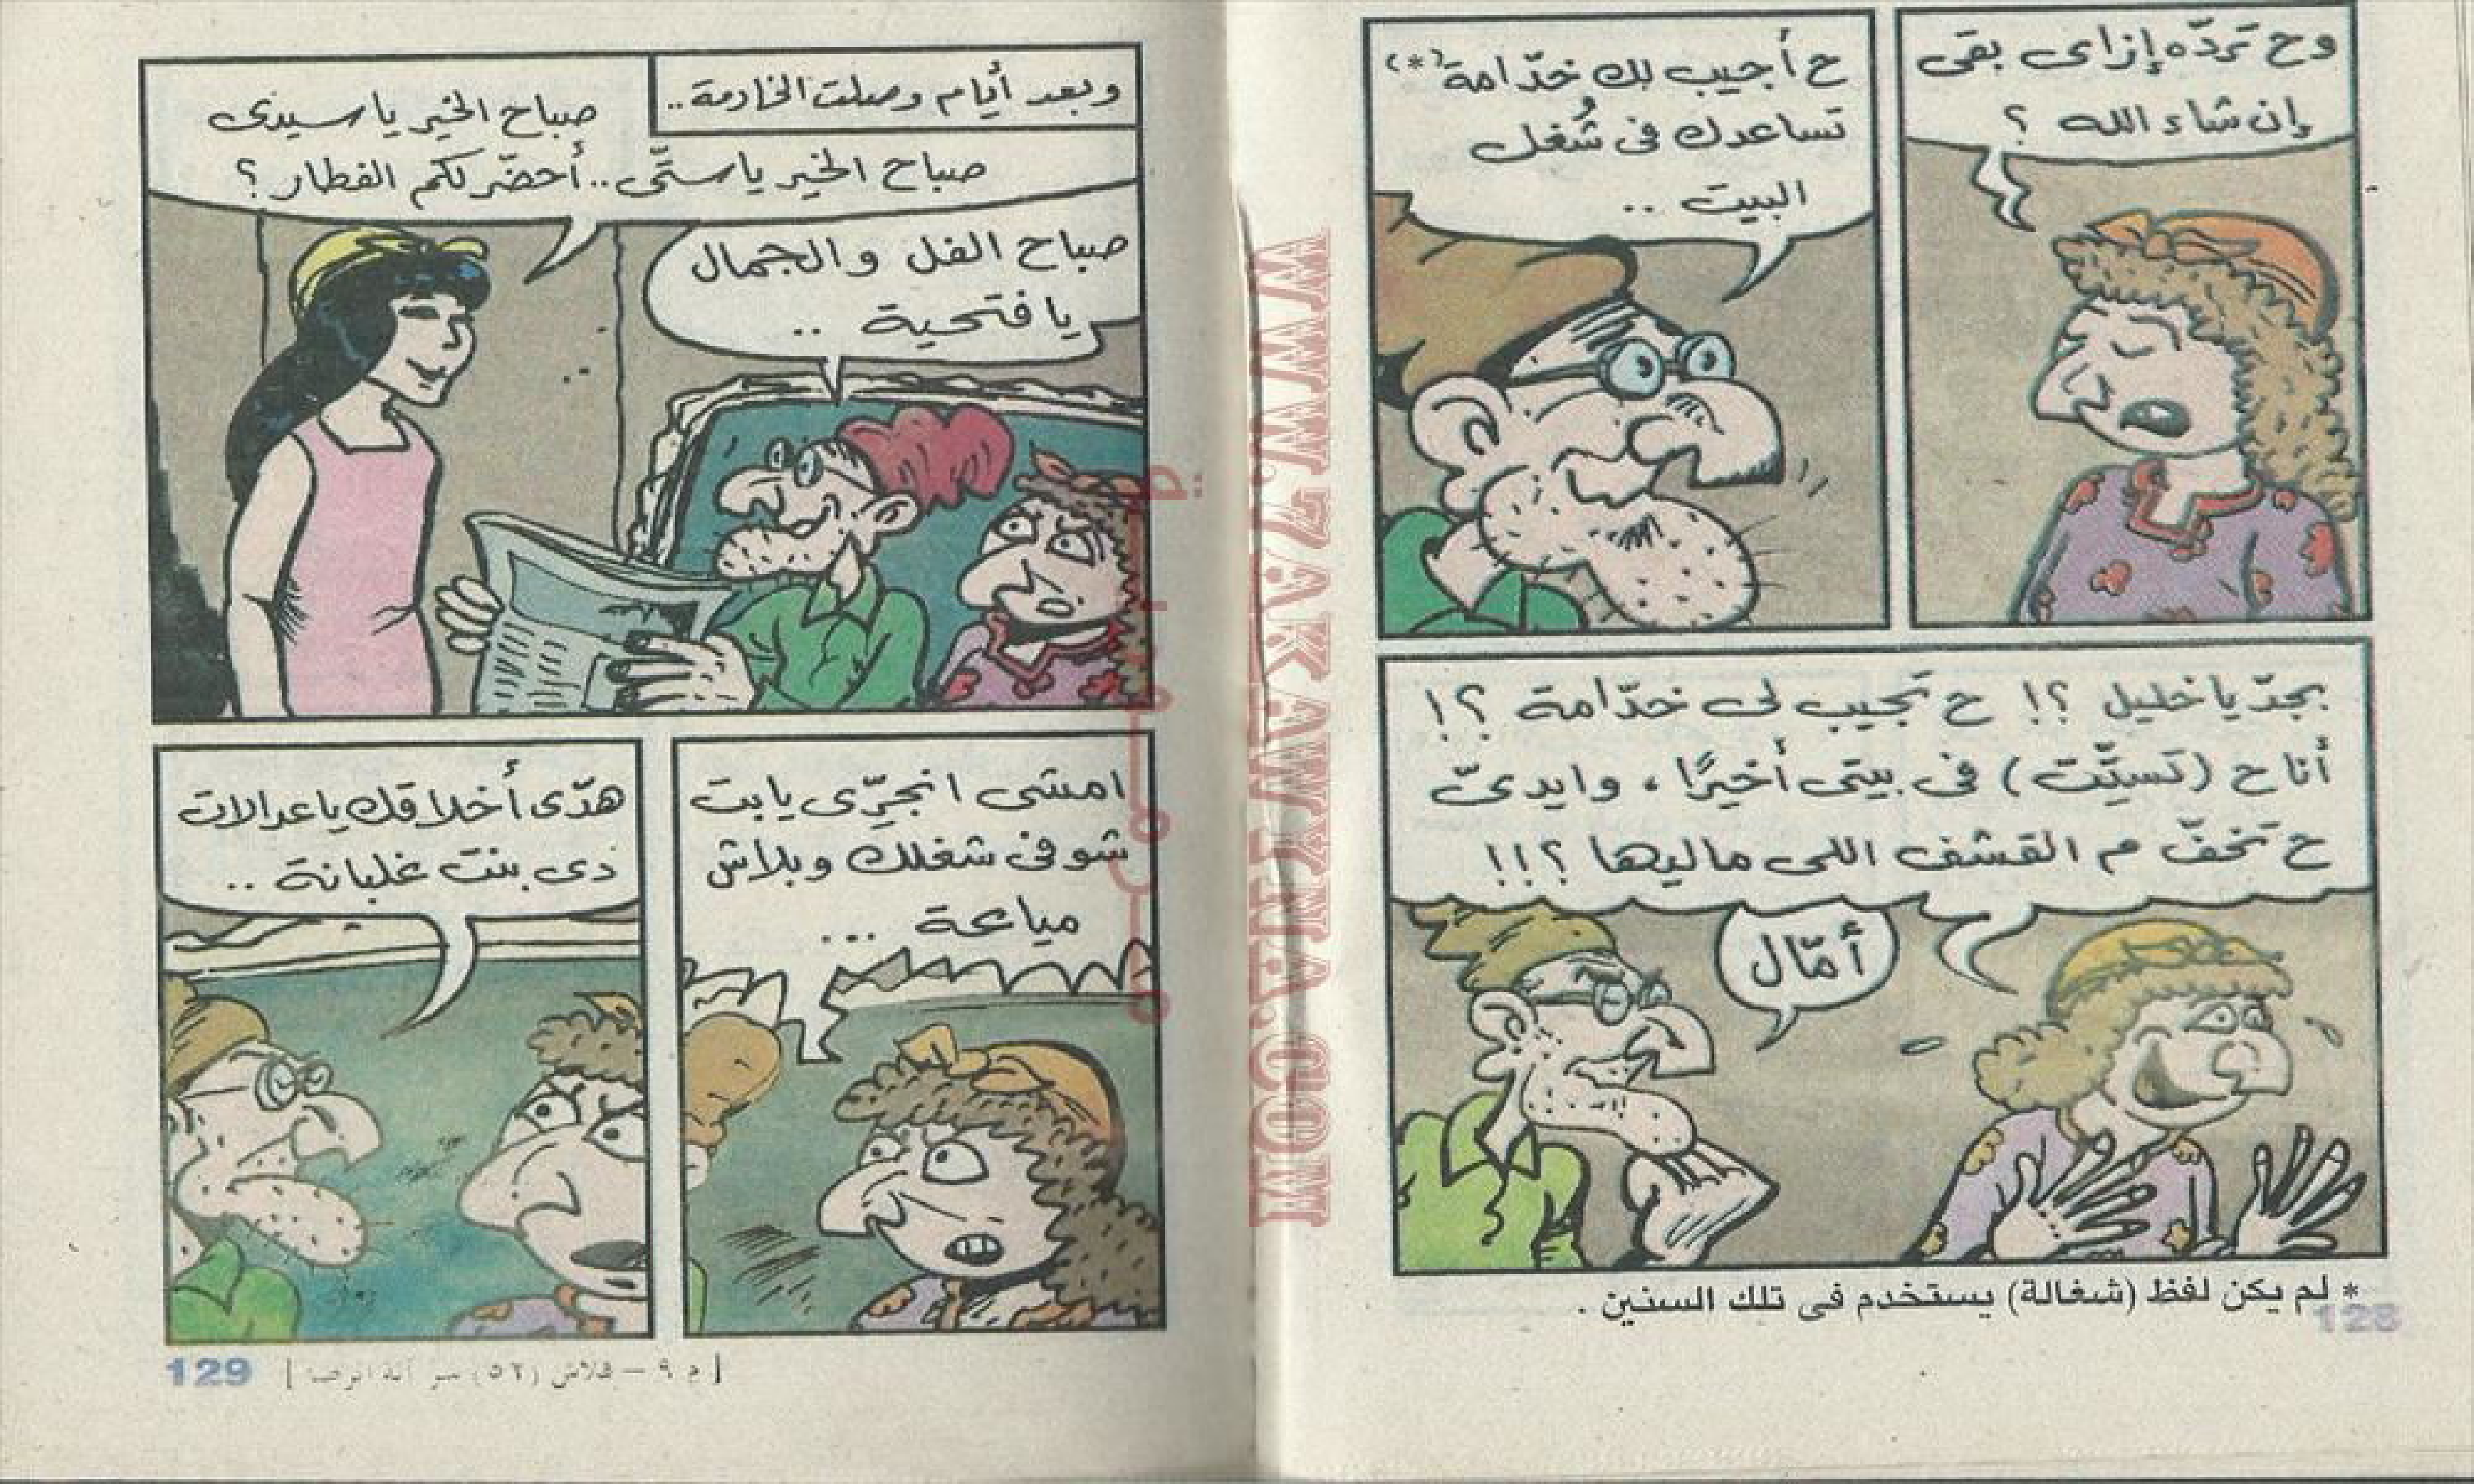 وح تردّه إزاى بقى
إن شاء الله ؟
ح أجيب لك خدّامة (*)
تساعدك فى شُغل
البيت ..
بجدّ يا خليل ؟! ح تجيب لى خدّامة ؟!
أنا ح (تسيِّت) فى بيتى أخيرًا ، وايدىّ
ح تخفّ م القشف اللى ماليها ؟!!
أمّال
* لم يكن لفظ (شغالة) يستخدم فى تلك السنين .
128
WWW.ZAKAWANA.COM
وبعد أيام وصلت الخادمة ..
صباح الخير يا سيدى
صباح الخير يا ستِّى .. أحضّر لكم الفطار ؟
صباح الفل والجمال
يا فتحية ..
امشى انجرِّى يا بت
شوفى شغلك وبلاش
مياعة ...
هدّى أخلاقك يا عدالات
دى بنت غلبانة ..
[ م ٩ – فلاش (٥٢)
129